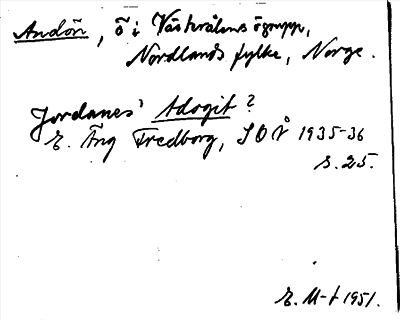 Andön, ö i Västerålens ögrupp,
Nordlands fylke, Norge.
Jordanes' Adogit?
E. Äng Fredborg, SOÅ 1935-36
s. 25.
E. M-t 1951.